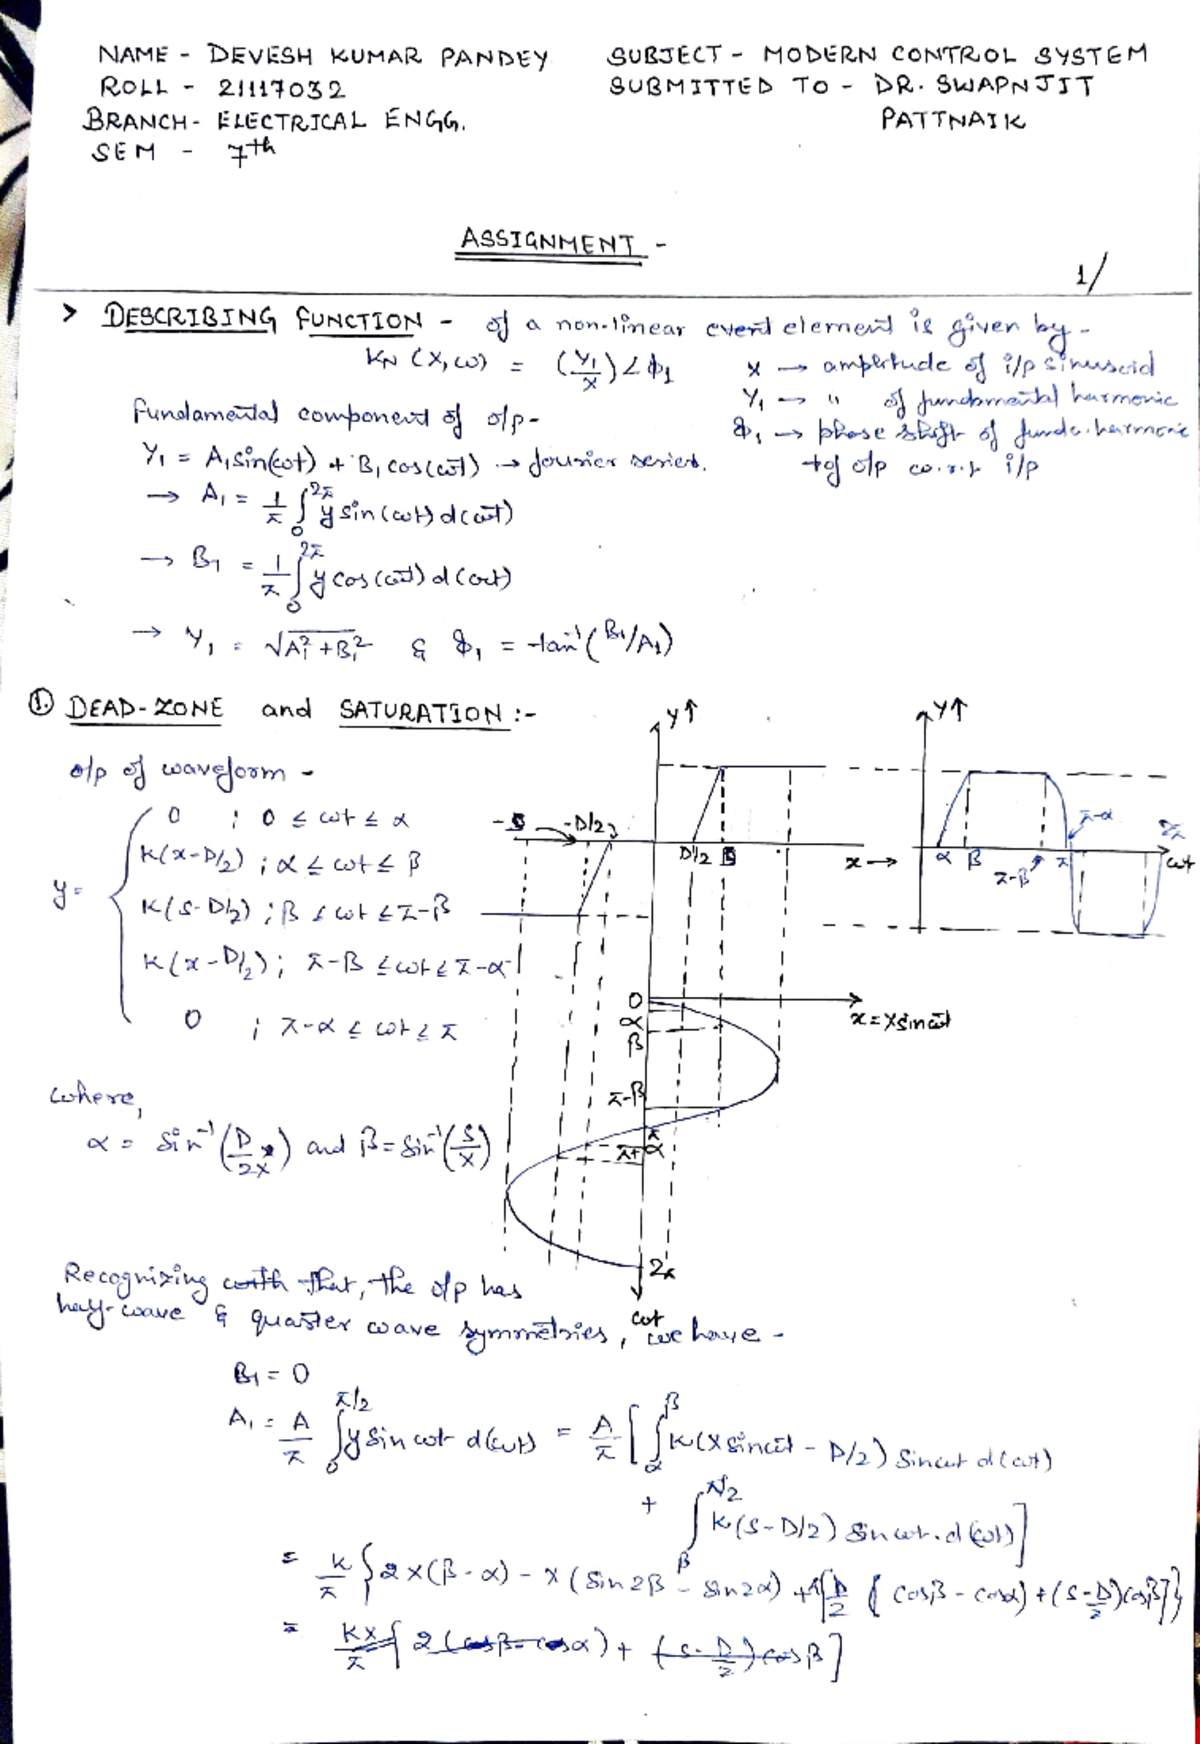 NAME - DEVESH KUMAR PANDEY SUBJECT - MODERN CONTROL SYSTEM
ROLL - 21117032 SUBMITTED TO - DR. SWAPNJIT
BRANCH - ELECTRICAL ENGG. PATTNAIK
SEM - 7th
ASSIGNMENT -
1/
> DESCRIBING FUNCTION - of a non-linear element is given by -
KN (X, ω) = (Y1/X) ∠ Φ1
x → amplitude of i/p sinusoid
Y1 → " of fundamental harmonic
Φ1 → phase shift of funda. harmonic
of o/p w.r.t i/p
Fundamental component of o/p -
Y1 = A1 sin(ωt) + B1 cos(ωt) → fourier series.
→ A1 = 1/π ∫0^2π y sin(ωt) d(ωt)
→ B1 = 1/π ∫0^2π y cos(ωt) d(ωt)
→ Y1 = √A1² + B1² & Φ1 = tan⁻¹(B1/A1)
① DEAD-ZONE and SATURATION :-
o/p of waveform -
y =
0 ; 0 ≤ ωt ≤ α
K(x-D/2) ; α ≤ ωt ≤ β
K(S-D/2) ; β ≤ ωt ≤ π-β
K(x-D/2) ; π-β ≤ ωt ≤ π-α
0 ; π-α ≤ ωt ≤ π
Y↑
-D/2
D/2
x →
Y↑
α β π-β π π-α 2π ωt
0
α
β
π-β
π
π+α
2π
ωt
x = X sin ωt
where,
α = sin⁻¹(D/2X) and β = sin⁻¹(S/X)
Recognizing that, the o/p has
half-wave & quarter wave symmetries, we have -
B1 = 0
A1 = A/π ∫0^π/2 y sin ωt d(ωt) = A/π [ ∫α^β K(X sin ωt - D/2) sin ωt d(ωt)
+ ∫β^π/2 K(S-D/2) sin ωt . d(ωt) ]
= K/π { 2X(β-α) - X(sin 2β - sin 2α) + 4[D/2 (cos β - cos α) + (S-D/2) cos β] }
= KX/π { 2(cos β - cos α) + (S-D/2) cos β ]